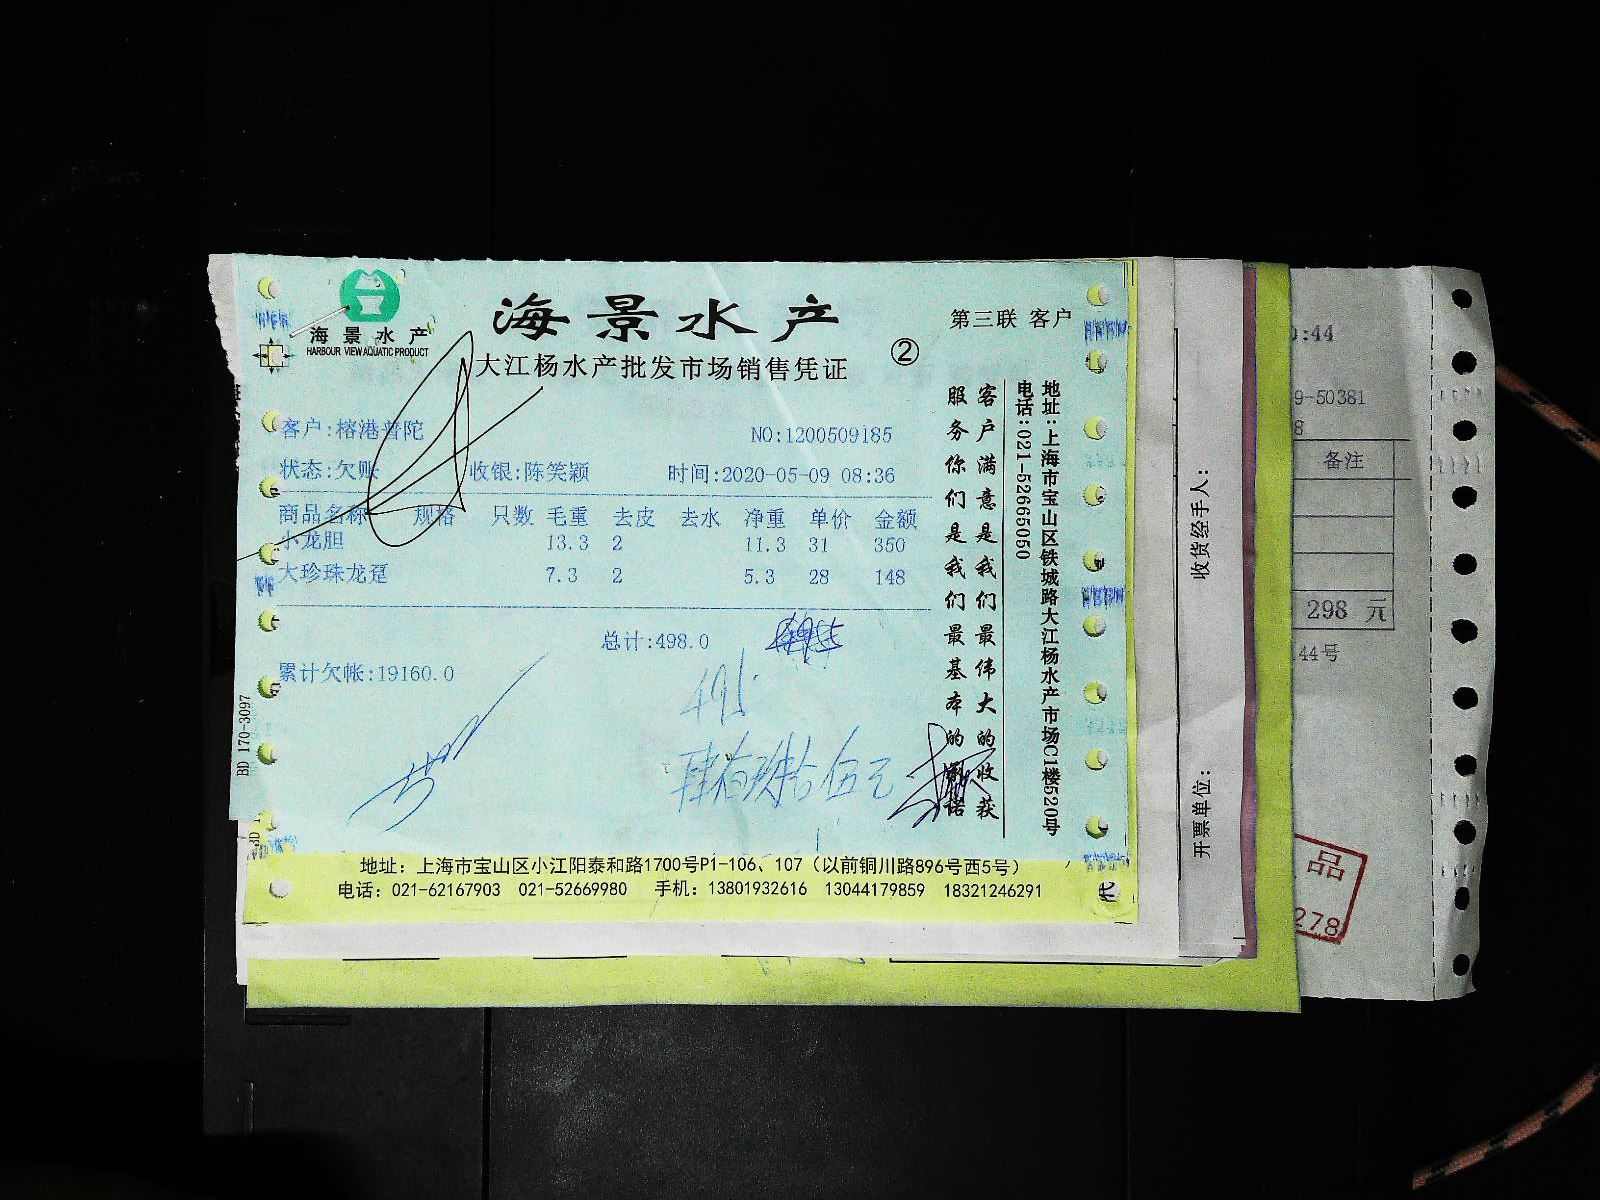 海景水产
HARBOUR VIEW AQUATIC PRODUCT
海景水产
大江杨水产批发市场销售凭证
②
第三联 客户
客户:榕港普陀
NO:1200509185
状态:欠账 收银:陈笑颖 时间:2020-05-09 08:36
商品名称 规格 只数 毛重 去皮 去水 净重 单价 金额
小龙胆 13.3 2 11.3 31 350
大珍珠龙趸 7.3 2 5.3 28 148
总计:498.0
累计欠帐:19160.0
495
肆佰玖拾伍元
客户满意是我们最伟大的收获
服务你们是我们最基本的承诺
地址:上海市宝山区铁城路大江杨水产市场C1楼520号
电话:021-52665050
BD 170-3097
BD
地址：上海市宝山区小江阳泰和路1700号P1-106、107（以前铜川路896号西5号）
电话：021-62167903 021-52669980 手机：13801932616 13044179859 18321246291
收货经手人：
开票单位：
:44
9-50381
8
备注
298 元
44号
品
278